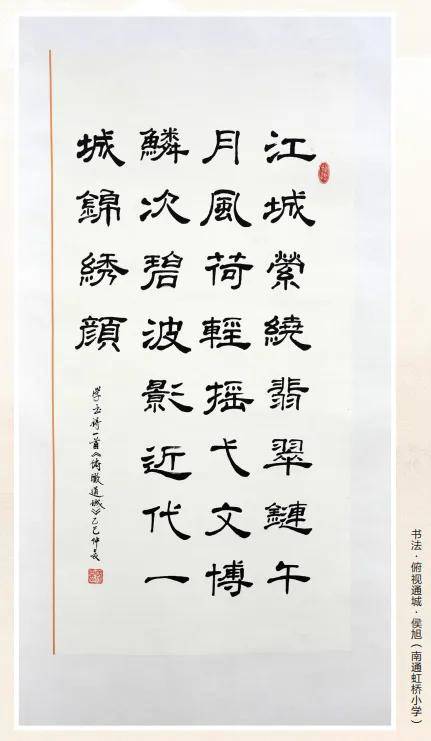 江城縈繞翡翠鏈午
月風荷輕摇弋文博
鱗次碧波影近代一
城錦綉顔
诗一首《俯瞰通城》乙巳仲夏
书法·俯视通城·侯旭（南通虹桥小学）